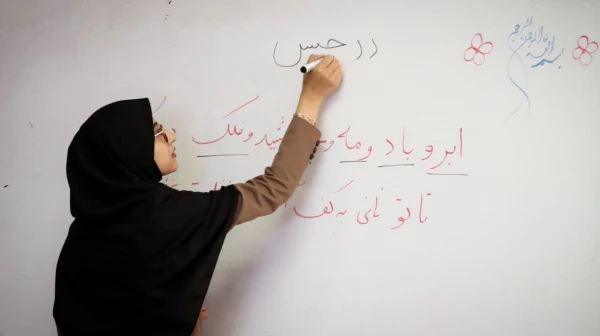 بسم الله الرحمن الرحیم
در
ابر و باد و مه و شید و فلک
تا تو نانی به کف